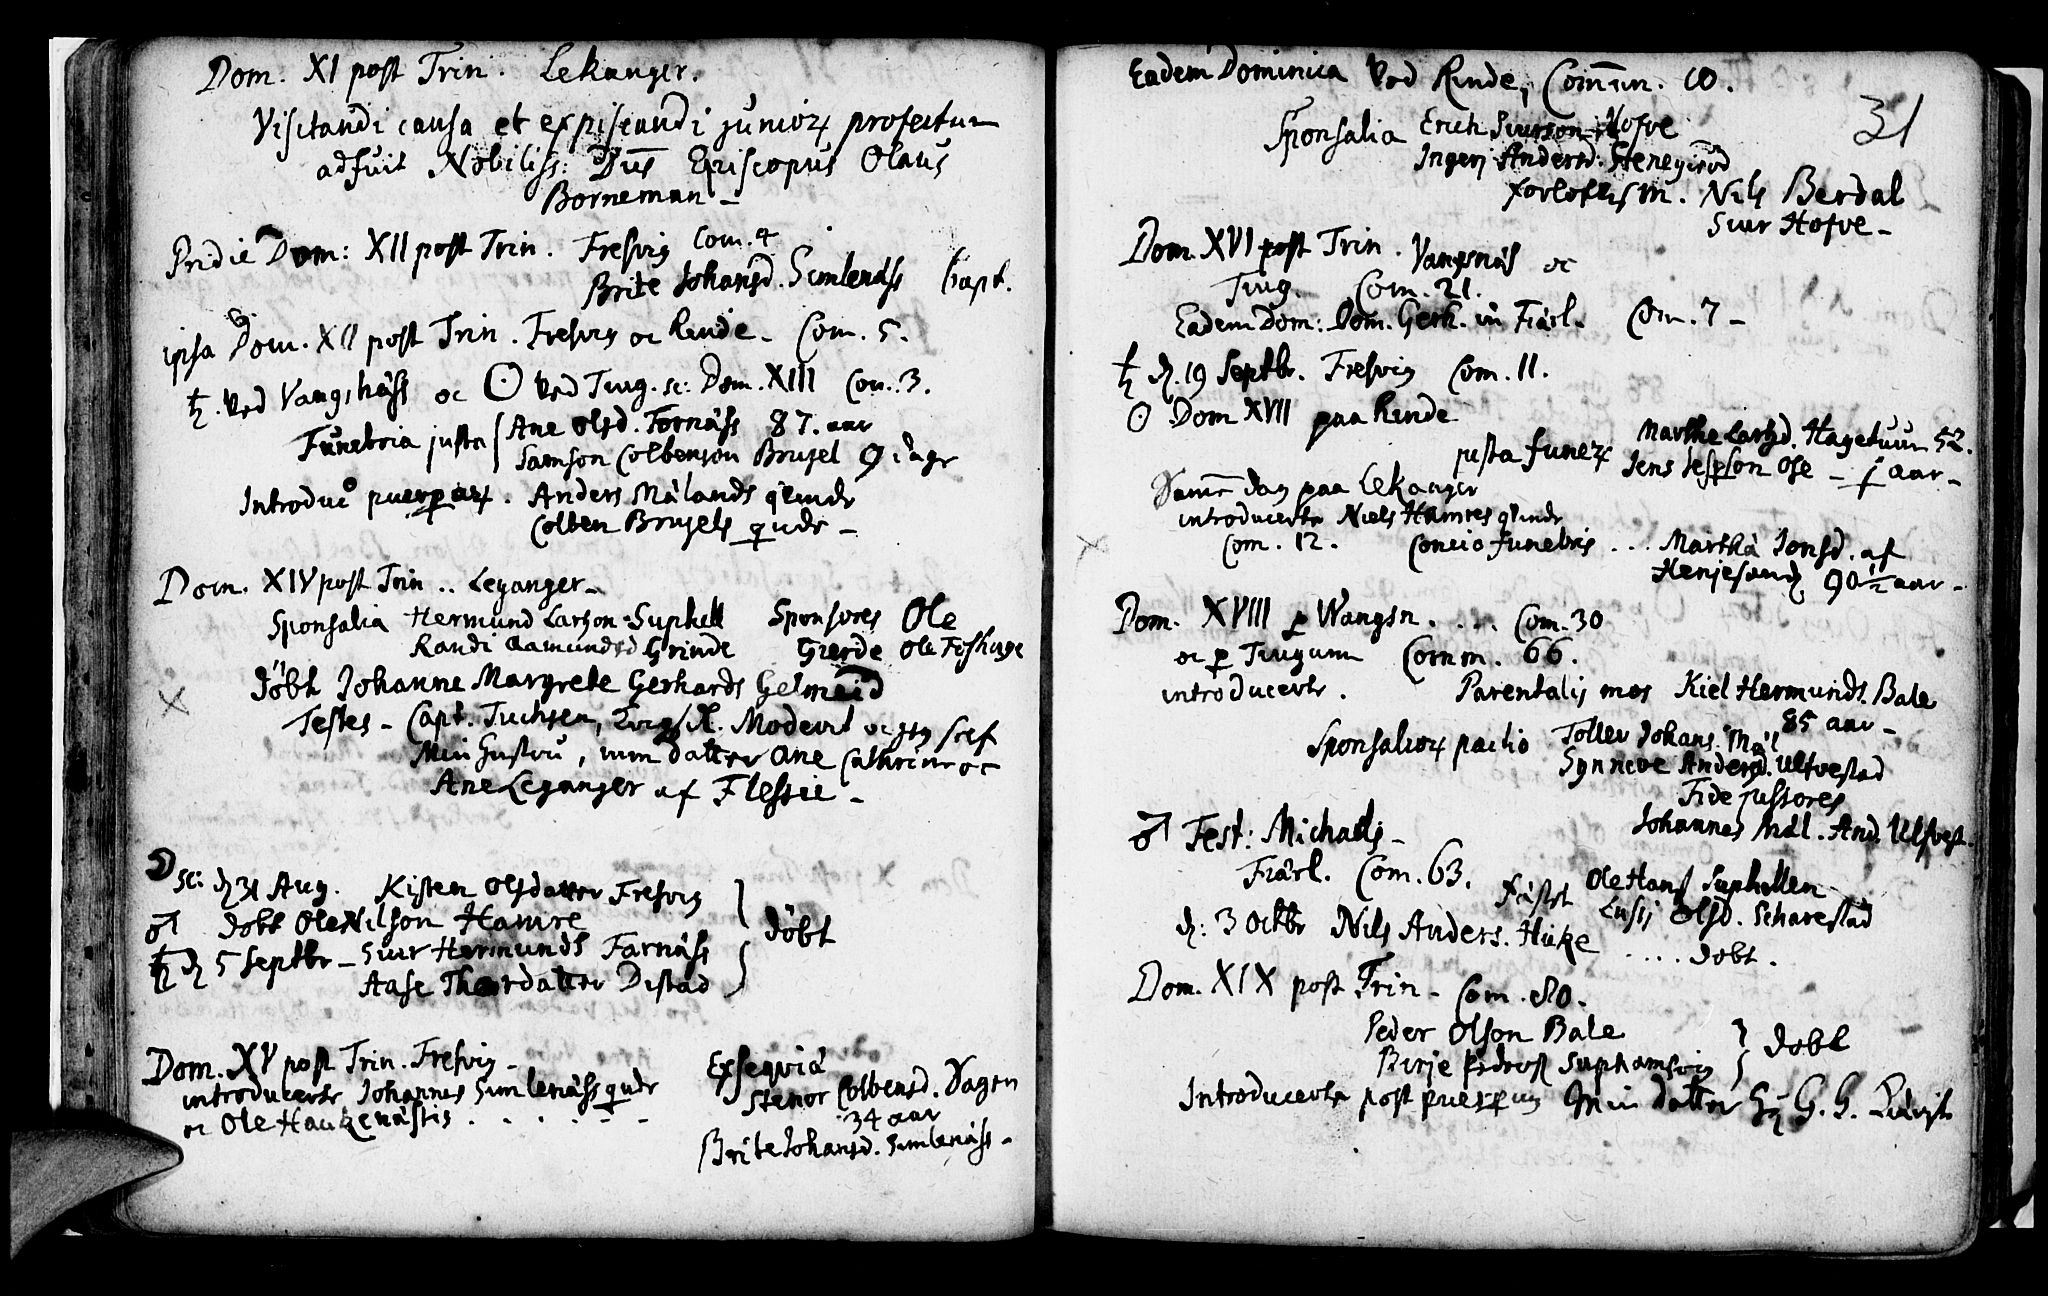 Dom. XI post Trin. Lekanger.
Visitandi causa et expiscandi juniorꝝ profectum
adfuit Nobiliss: Dn̄s Episcopus Olaus
Borneman –
Pridie Dom: XII post Trin. Fresvig Com. 4
Brite Johansd. Simlenäss bapt.
ipsa Dom. XII post Trin. Fresvig oc Rinde – Com. 5.
♄. ved Vangsnäss oc ☉ ved Tiug. sc: Dom. XIII Com. 3.
Funebria justa Ane Olsd. Fornäss 87. aar
Samson Colbenson Brusel 9 dage
Introduc puerperarꝝ. Anders Målands qvinde
Colben Brusels qvinde –
Dom. XIV post Trin .. Leganger –
Sponsalia Hermund Larson Suphell Sponsores Ole
Randi Aamundsd Grinde Gierde Ole Foshuge
döbt Johanne Margrete Gerhards Gelmeid
Testes – Capt. Tuchsen, Modevit oc
Min Hustru, min datter Ane Cathrine oc
Ane Leganger af Flessie –
☽ sc: d. 31 Aug. Kisten Olsdatter Fresvig
♂ döbt Ole Nilson Hamre döbt
♄ d 5 Septbr – Siur Hermunds Farnäss
Aase Thordatter Distad
Dom. XV post Trin. Fresvig – Exseqviä
introducerte Johannes Simlenäss qvinde Stenor Colbensd. Dagen
oc Ole Haukenästis . . . . . – 34 aar
Brite Johansd. Simlenäss –
Eadem Dominica ved Rinde, Comm̄un. 10.
31
Sponsalia Erich Siurson Hofve
Ingerj Andersd:
forlofvism. Nils Berdal
Siur Hofve –
Dom. XVI post Trin. Vangsnäs oc
Tiug. Com. 21.
Eadem Dom: Dom. Gerh. in Fiärl. Com. 7 –
♄ d. 19 Septbr. Fresvig Com. 11.
☉ Dom XVII paa Rinde
justa funerꝝ Marthe Larsd. Hagetuun 52.
Jens Jespson Ose – 1 aar –
Samē dag paa Lekanger
introducerte Niels Hamres qvinde
Com. 12. Concio funebris ... Martha Jonsd. af
Henjesand, 90½ aar –
Dom. XVIII p Wangsn. ... Com. 30
oc p Tiugum Comm. 66.
introducerte. Parentalis mos Kiel Hermunds. Bale
85 aar –
Sponsaliorꝝ pactio Toller Johans. Mål
Synneve Andersd. Ulfvestad
Fide jussores
Johannes Mål. And. Ulfvest.
♂ Fest: Michaelis –
Fiärl. Com. 63. fästet Ole Hans Suphellen
Lussj Olsd. Scharestad
d: 3 Octbr Nils Anders. Huke .... döbt.
Dom. XIX post Trin – Com. 80.
Peder Olson Bale
Birje Pedersd Suphamsvig döbt
Introducerte post puerperium Min datter G. G. Lidvijt